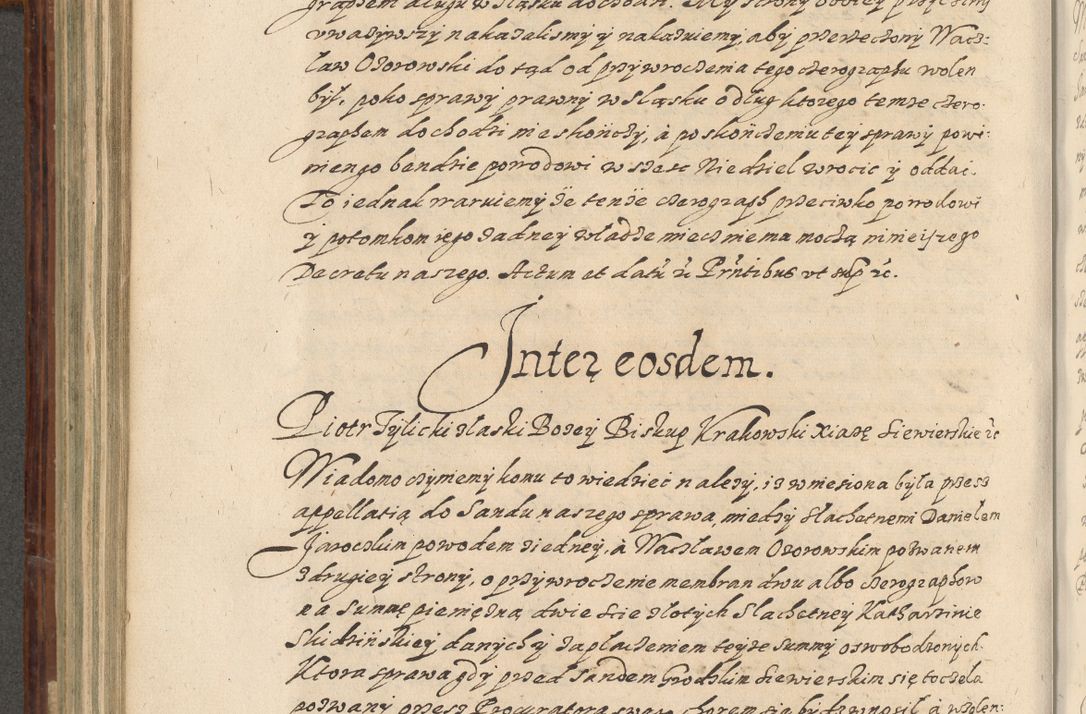 graphem długu w Sląsku dochodzi. My strony obiey przyczyny
uwazywszy nakazalismy y nakazuiemy, aby przerzeczony Wacz:
ław Ozorowski do tąd od przywroczenia tego czerographu wolen
był, poko sprawy prawny w Sląsku o dług ktorego temze czero:
graphem dochodzi nieskończy, à po skończeniu tey sprawy powi:
niengo bendzie powodowi w szesc Niedziel wrocic y oddac.
To iednak waruiemy ze tenze czerograph przeciwko powodowi
y potomkom iego zadney władze miecz niema moczą ninieiszego
Decretu naszego. Actum et datũ ꝛc Prñtibus vt sup ꝛc.
Inter eosdem.
Piotr Tylicki z łaski Bozey Biskup Krakowski Xiązę Siewierskie ꝛc
Wiadomo czyniemy komu to wiedziec nalezy, iz wniesiona była przez
appellatią do Sandu naszego sprawa, miedzy Slachetnemi Danielem
Jaroczkim powodem z iedney, à Waczławem Ozorowskim pozwanem
z drugiey strony, o przywroczenie membran dwu albo czerographow
na Summę pieniężną dwie Scie złotych Slachetney Katharzinie
Skidzińskiey danych y zapłaczeniem teyze summy oswobodzonych.
Ktora sprawa gdy przed Sandem Grodzkim Siewierskim się toczeła
pozwany przez Procuratora swego chorem się bydz wnosił à wolen: